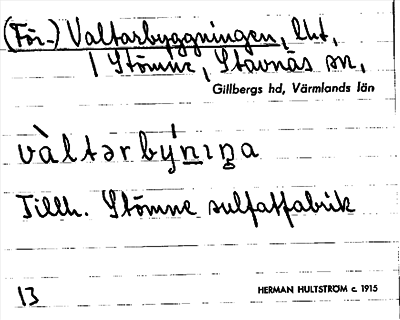 (För-) Valtarbyggningen, lht,
i Stömne, Stavnäs sn,
Gillbergs hd, Värmlands län
vàltərby̍niŋa
Tillh. Stömne sulfatfabrik
13
HERMAN HULTSTRÖM c. 1915